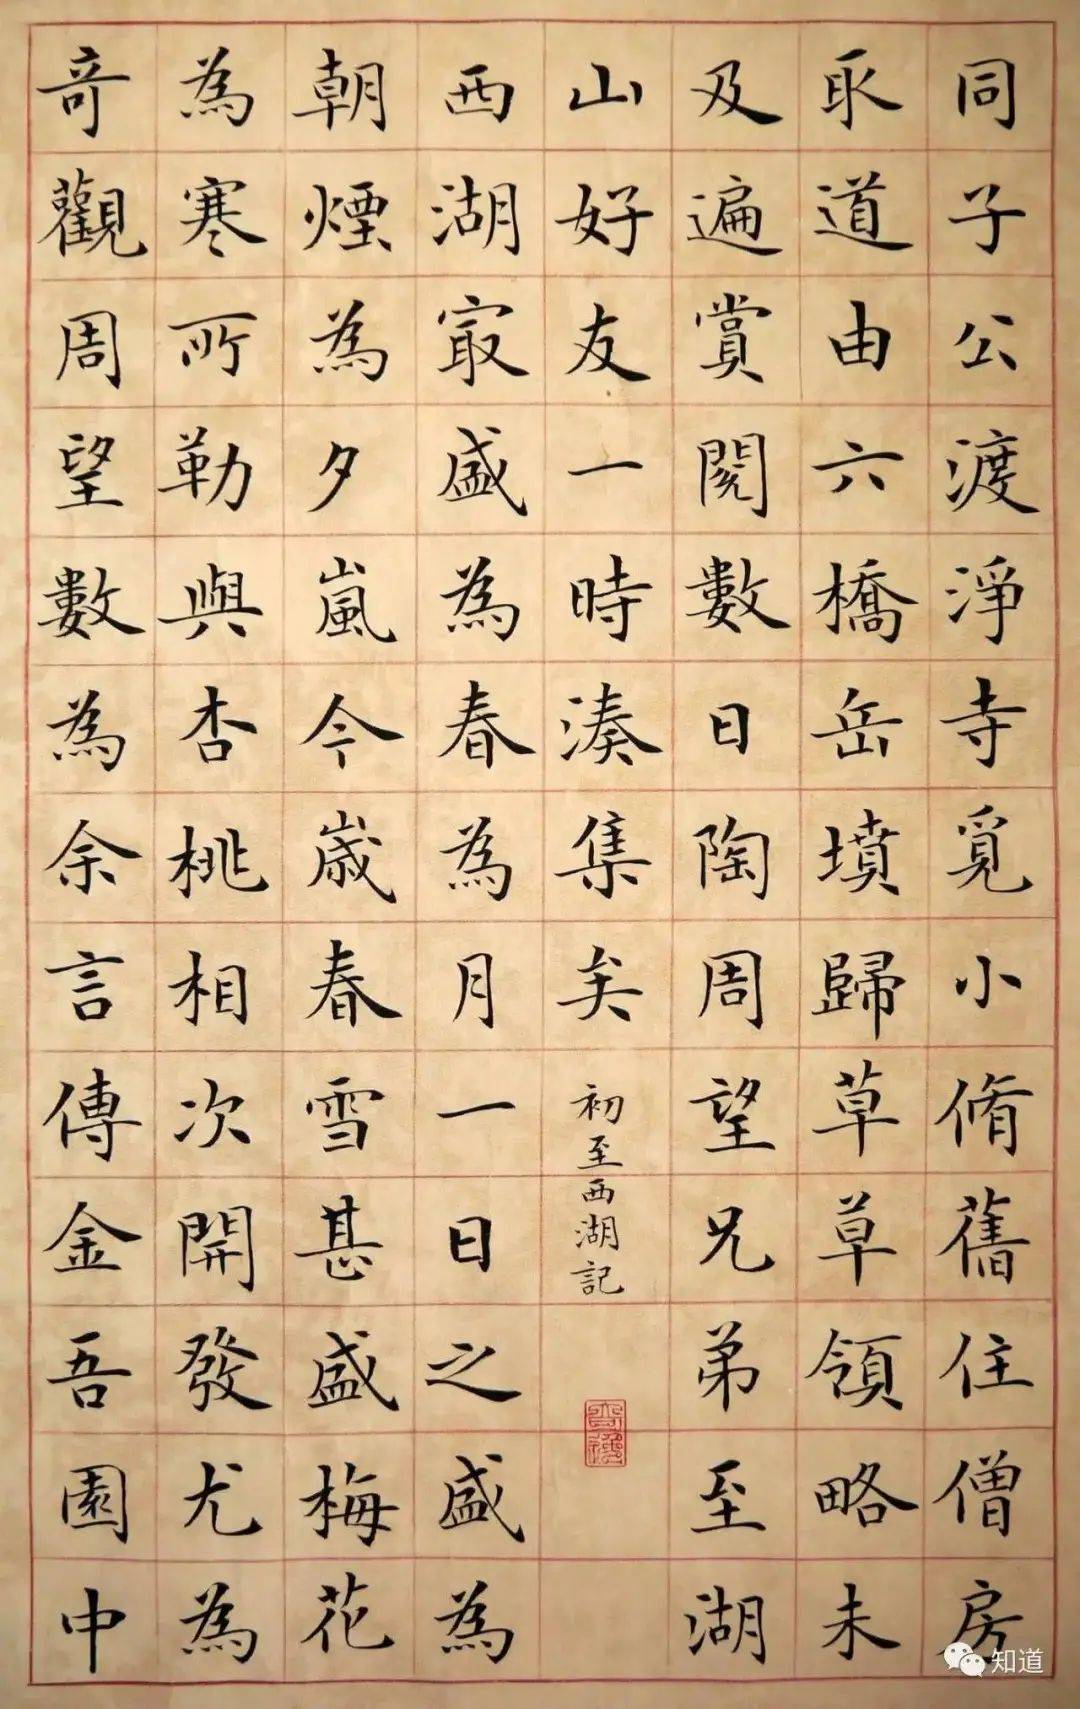 同子公渡淨寺覓小脩舊住僧房
取道由六橋岳墳歸草草領略未
及遍賞閱數日陶周望兄弟至湖
山好友一時湊集矣
初至西湖記
西湖㝡盛為春為月一日之盛為
朝煙為夕嵐今歲春雪甚盛梅花
為寒所勒與杏桃相次開發尤為
奇觀周望數為余言傳金吾園中
知道